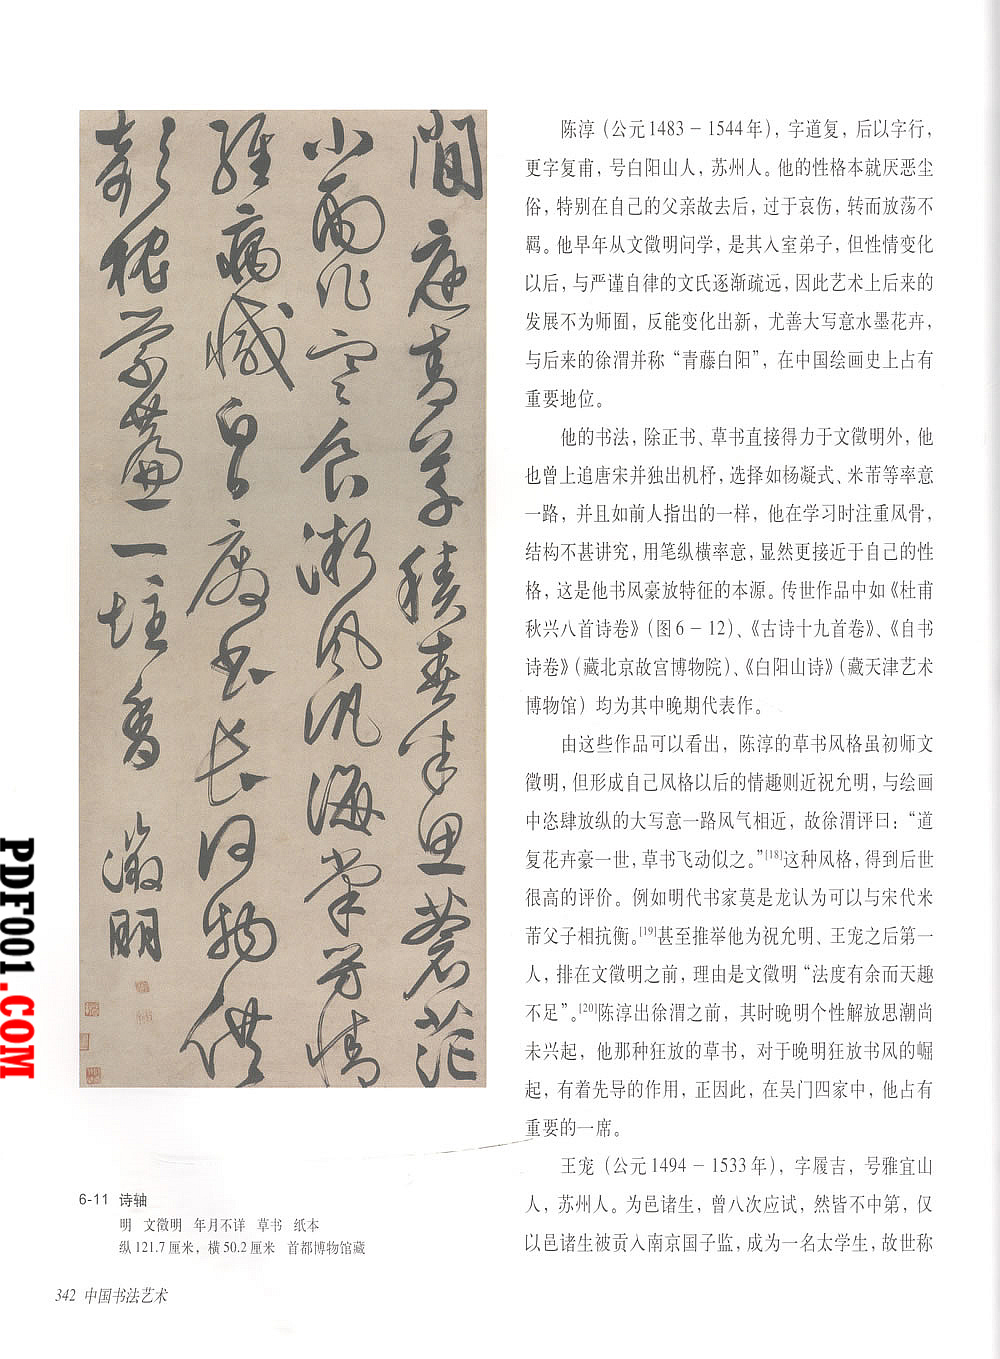 閒庭青草積春半思蒼茫
小雨作寒食風汎海棠芳情
經病減白日廢書長何物供
簾一炷香 徵明
陈淳（公元1483－1544年），字道复，后以字行，
更字复甫，号白阳山人，苏州人。他的性格本就厌恶尘
俗，特别在自己的父亲故去后，过于哀伤，转而放荡不
羁。他早年从文徵明问学，是其入室弟子，但性情变化
以后，与严谨自律的文氏逐渐疏远，因此艺术上后来的
发展不为师囿，反能变化出新，尤善大写意水墨花卉，
与后来的徐渭并称“青藤白阳”，在中国绘画史上占有
重要地位。
他的书法，除正书、草书直接得力于文徵明外，他
也曾上追唐宋并独出机杼，选择如杨凝式、米芾等率意
一路，并且如前人指出的一样，他在学习时注重风骨，
结构不甚讲究，用笔纵横率意，显然更接近于自己的性
格，这是他书风豪放特征的本源。传世作品中如《杜甫
秋兴八首诗卷》（图6－12）、《古诗十九首卷》、《自书
诗卷》（藏北京故宫博物院）、《白阳山诗》（藏天津艺术
博物馆）均为其中晚期代表作。
由这些作品可以看出，陈淳的草书风格虽初师文
徵明，但形成自己风格以后的情趣则近祝允明，与绘画
中恣肆放纵的大写意一路风气相近，故徐渭评曰：“道
复花卉豪一世，草书飞动似之。”[18]这种风格，得到后世
很高的评价。例如明代书家莫是龙认为可以与宋代米
芾父子相抗衡。[19]甚至推举他为祝允明、王宠之后第一
人，排在文徵明之前，理由是文徵明“法度有余而天趣
不足”。[20]陈淳出徐渭之前，其时晚明个性解放思潮尚
未兴起，他那种狂放的草书，对于晚明狂放书风的崛
起，有着先导的作用，正因此，在吴门四家中，他占有
重要的一席。
王宠（公元1494－1533年），字履吉，号雅宜山
人，苏州人。为邑诸生，曾八次应试，然皆不中第，仅
以邑诸生被贡入南京国子监，成为一名太学生，故世称
6-11 诗轴
明 文徵明 年月不详 草书 纸本
纵121.7厘米，横50.2厘米 首都博物馆藏
342 中国书法艺术
PDF001.COM